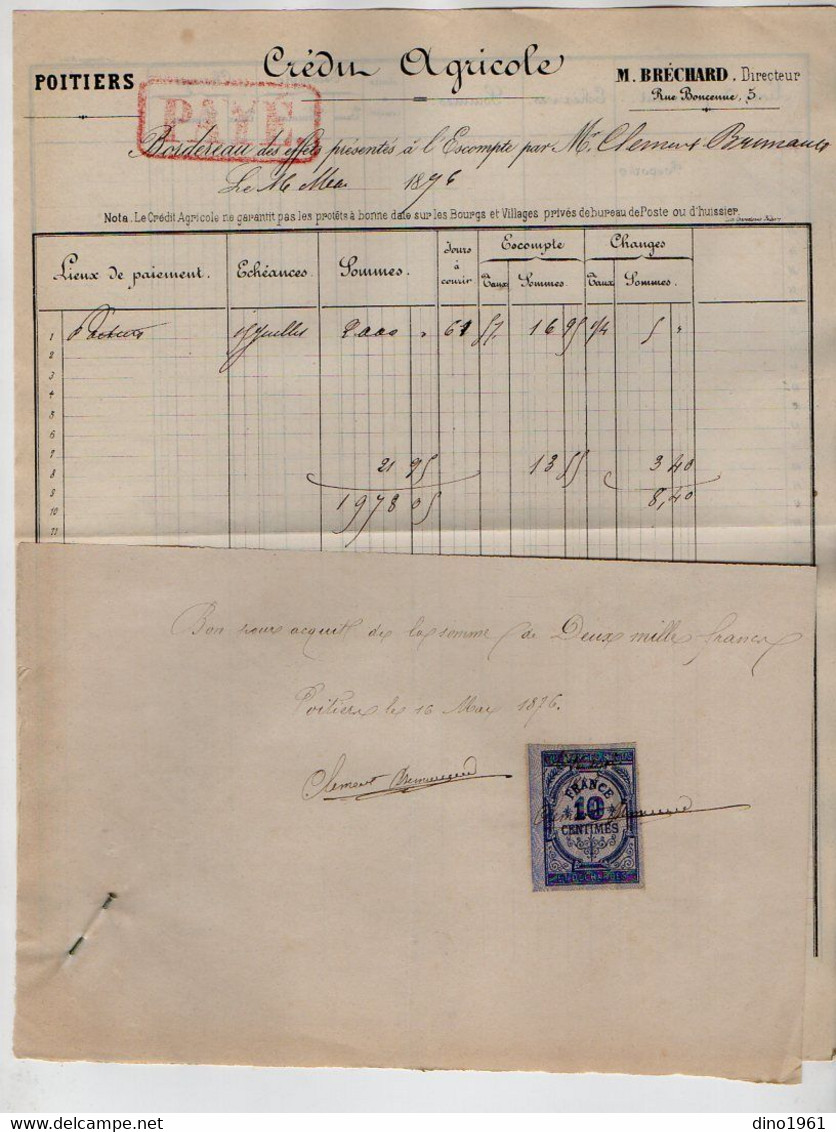 Crédit Agricole
POITIERS
M. BRÉCHARD, Directeur
Rue Boncenne, 5
PAYÉ.
Bordereau des effets présentés à l'Escompte par Mr Clement
Le 16 Mai 1876
Nota. Le Crédit Agricole ne garantit pas les protêts à bonne date sur les Bourgs et Villages privés de bureau de Poste ou d'huissier.
Lieux de paiement. Echéances. Sommes. Jours à courir Escompte Changes
Taux Sommes. Taux Sommes.
1 Poitiers 15 Juillet 2000 " 61 5% 16 95 1/4 5 "
2
3
4
5
6
7 21 95 13 55 3 40
8
9 1978 05 8,40
10
11
Bon pour acquit de la somme de Deux mille francs
Poitiers le 16 Mai 1876.
Clement
FRANCE
10
CENTIMES
dino1961